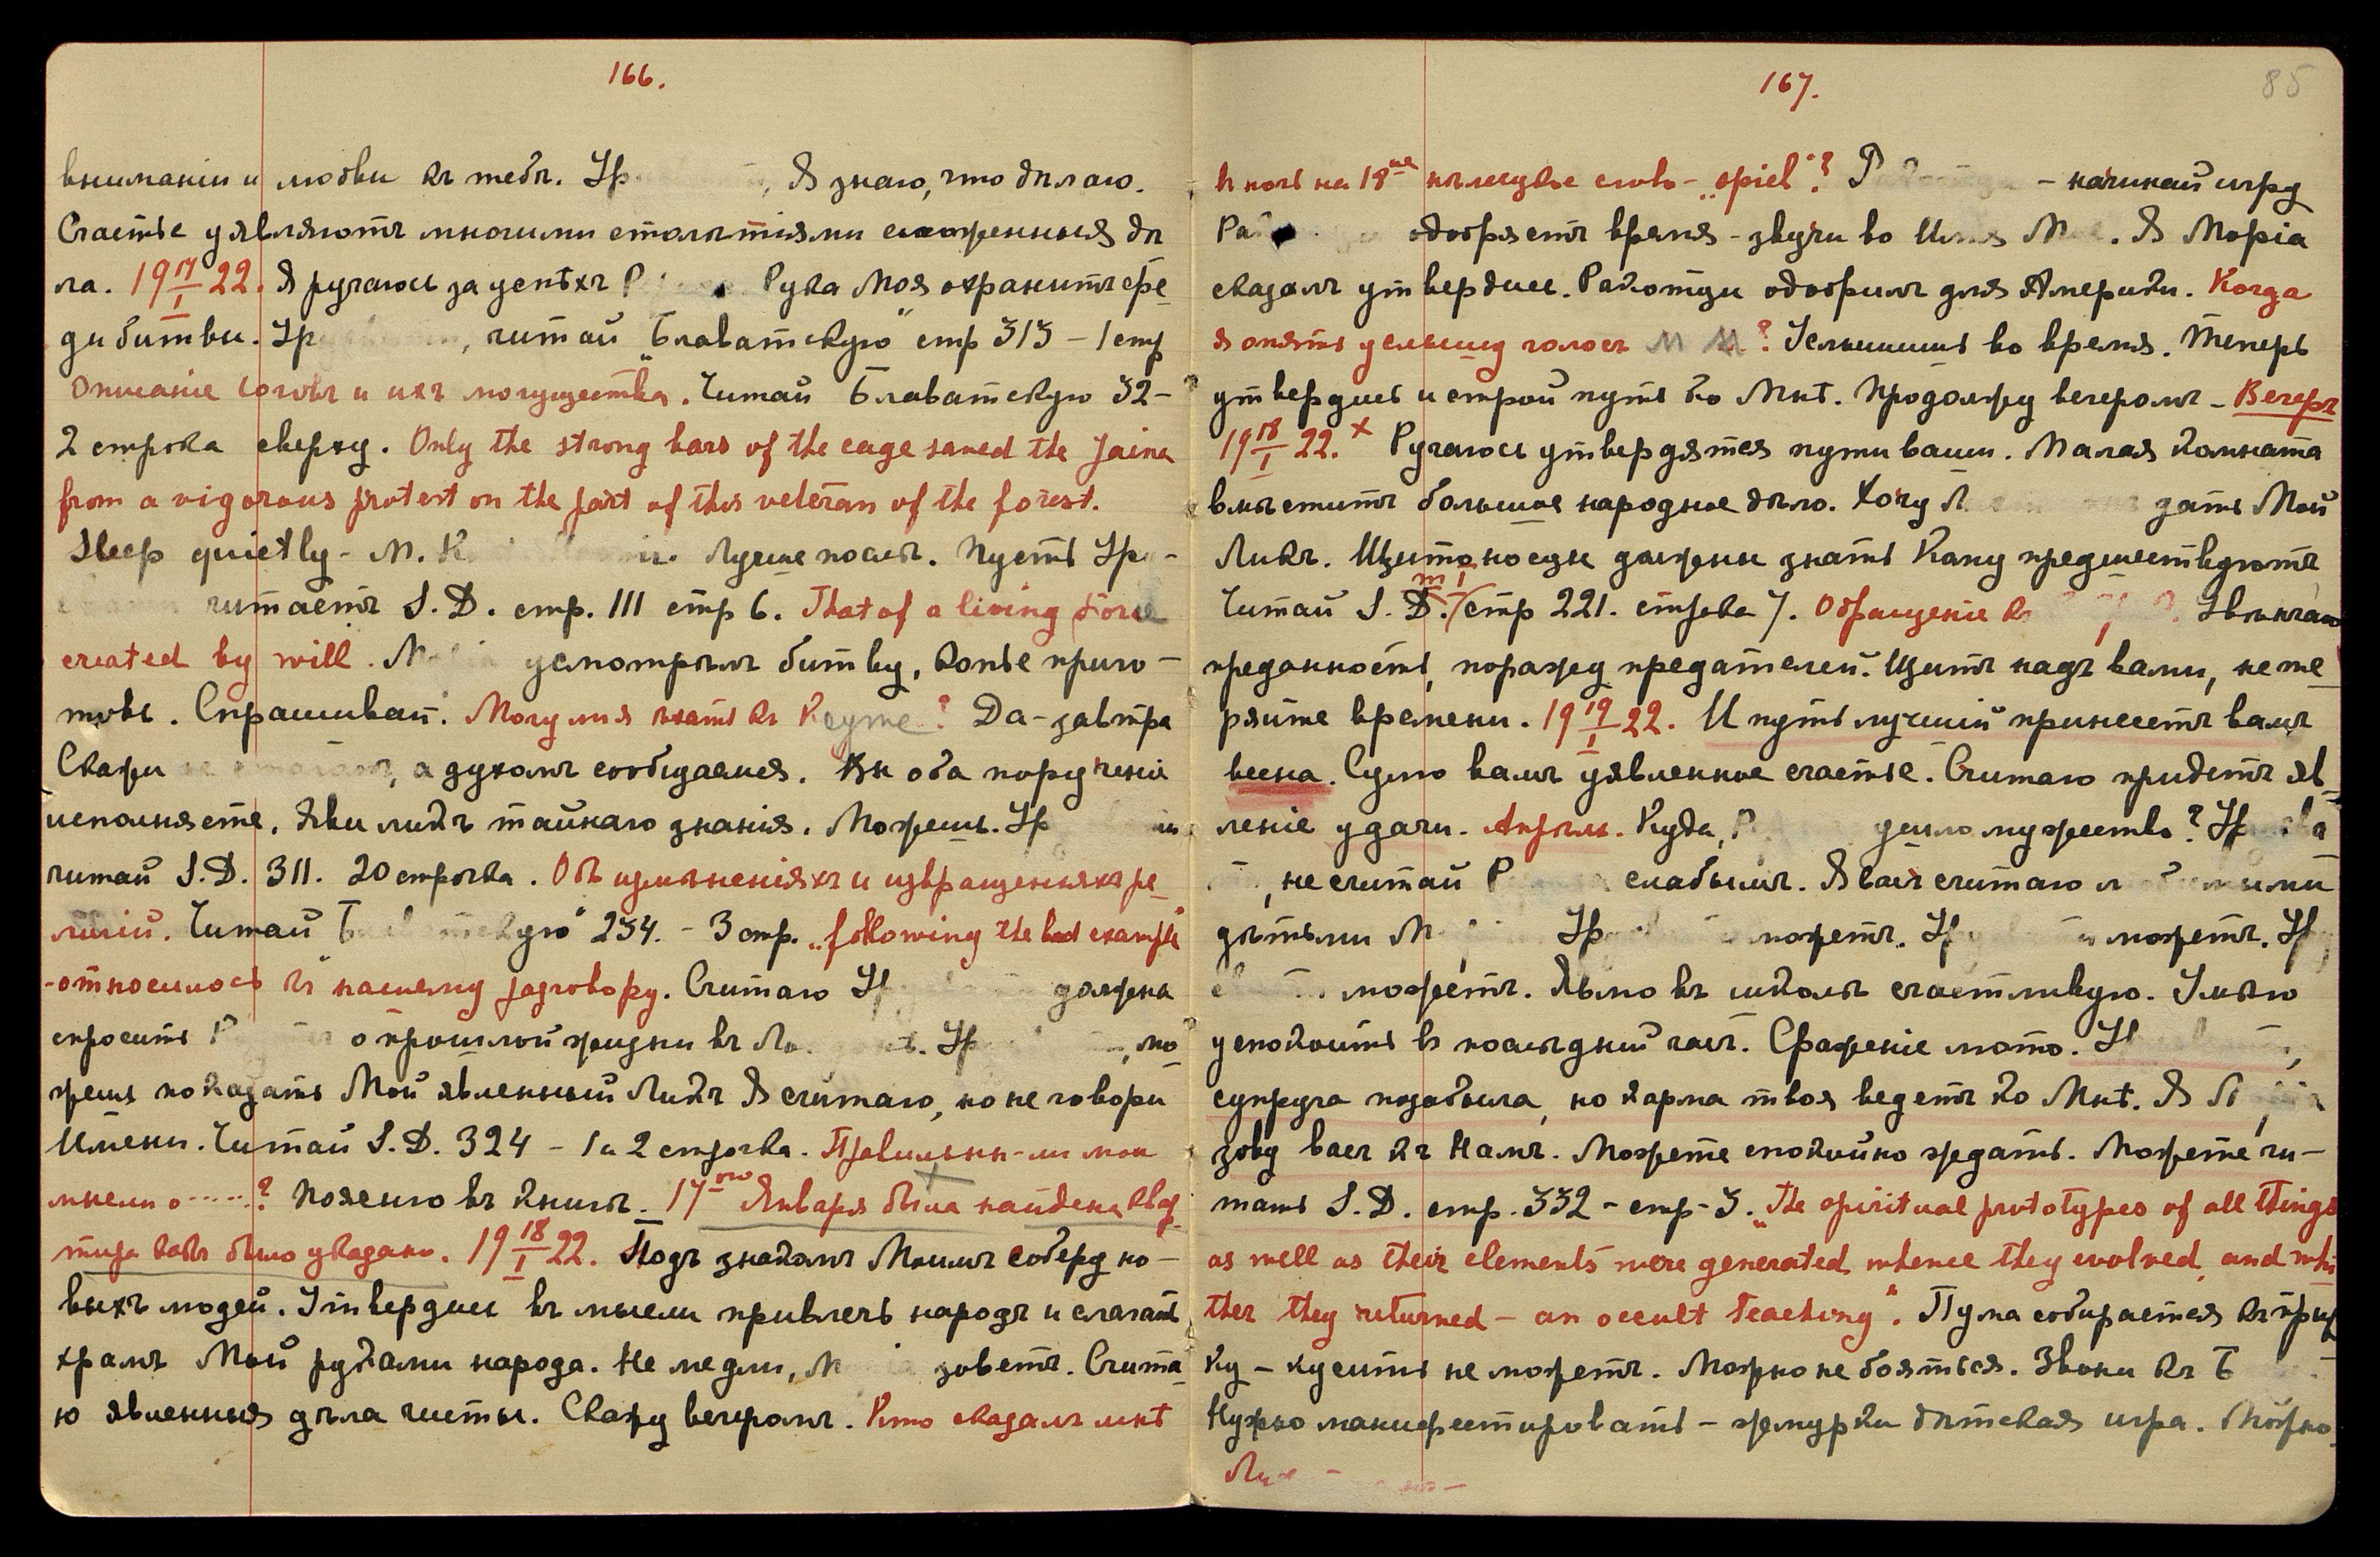 166.
вниманіи и любви къ тебѣ. Ур , Я знаю, что дѣлаю.
Счастье уявляютъ многими столѣтіями сложенныя дѣ
ла. 19 17/I 22. Я ручаюсь за успѣхъ Р Рука Моя охранитъ сре
ди битвы. Ур , читай „Блаватскую" стр 313 – 1 стр
Описаніе боговъ и ихъ могущества. Читай Блаватскую 32 –
2 строка сверху. Only the strong bars of the cage saved the Jaina
from a vigorous protest on the part of this veteran of the forest.
Sleep quietly – М. К Лучшее послѣ. Пусть Ур –
читаетъ S. D. стр. 111 стр 6. That of a living Force
created by will. М усмотрѣлъ битву, копье приго –
товь. Спрашивай. Могу ли я ѣхать къ ? Да – завтра
Скажи , а духомъ сообщаемся. Вы оба порученіе
исполняете. Яви ликъ тайнаго знанія. Можешь. Ур
читай S. D. 311. 20 строчка. Объ измѣненіяхъ и извращеніяхъ ре
лигіи. Читай Б скую" 234. – 3 стр. „following the bad example"
– относилось къ нашему разговору. Считаю Ур должна
спросить Р о прошлой жизни въ Ло . Ур , мо
жешь показать Мой явленный Ликъ Я считаю, но не говори
Имени. Читай S. D. 324 – 1 и 2 строчка. Правильны-ли мои
мысли о ....? Поясню въ книгѣ. 17го Января была найдена квар
тира какъ было указано. 19 18/I 22. Подъ знакомъ Моимъ соберу но –
выхъ людей. Утвердись въ мысли привлечь народъ и слагать
храмъ Мой руками народа. Не медли, М зоветъ. Счита
ю явленныя дѣла чисты. Скажу вечеромъ. Кто сказалъ мнѣ
167.
85
въ ночь на 18ое нѣмецкое слово – „spiel"? Р – начинай игру
Ра одобряетъ время – звучи во Имя М . Я Моріа
сказалъ утвердись. одобрилъ для Америки. Когда
я опять услышу голосъ М М? Услышишь во время. Теперь
утвердись и строй путь ко Мнѣ. Продолжу вечеромъ – Вечеръ
19 18/I 22. х Ручаюсь утвердятся пути ваши. Малая комната
вмѣститъ большое народное дѣло. Хочу Л дать Мой
Ликъ. Щитоносцы должны знать Кому предшествуютъ
Читай S. D. т I стр 221. строка 7. Обращеніе к Увѣнчаю
преданность, поражу предателей. Щитъ надъ вами, не те
ряйте времени. 19 19/I 22. И путь лучшій принесетъ вамъ
весна. Сулю вамъ уявленное счастье. Считаю придетъ яв
леніе удачи. Апрѣль. Куда, Р ушло мужество? Ур
, не считай Р слабымъ. Я васъ считаю
дѣтьми М Ур можетъ. Ур можетъ. Ур
можетъ. Явлю въ школѣ счастливую. Умѣю
успокоить въ послѣдній часъ. Сраженіе люто. У ,
супруга позабыла, но карма твоя ведетъ ко Мнѣ. Я
зову васъ къ Намъ. Можете спокойно ждать. Можете чи –
тать S. D. стр. 332 – стр – 3. „The spiritual prototypes of all things
as well as their elements were generated, whence they evolved, and whi
ther they returned – an occult teaching". Пума собирается къ прыж
ку – кусить не можетъ. Можно не бояться. Звони къ Б
Нужно манифестировать – жмурки дѣтская игра. Можно